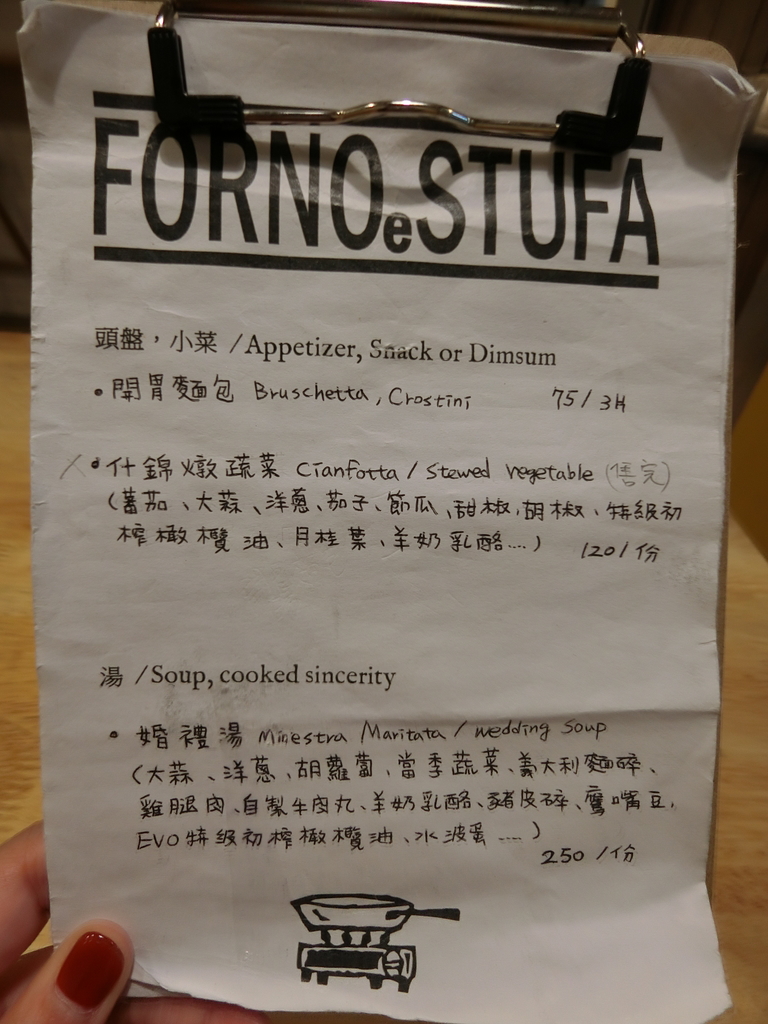 FORNOeSTUFA
頭盤，小菜 /Appetizer, Snack or Dimsum
• 開胃麵包 Bruschetta, Crostini 75/3H
X • 什錦燉蔬菜 Cianfotta / Stewed vegetable (售完)
(蕃茄、大蒜、洋蔥、茄子、節瓜、甜椒、胡椒、特級初
榨橄欖油、月桂葉、羊奶乳酪....) 120/份
湯 /Soup, cooked sincerity
• 婚禮湯 Minestra Maritata / wedding soup
(大蒜、洋蔥、胡蘿蔔、當季蔬菜、義大利麵碎、
雞腿肉、自製牛肉丸、羊奶乳酪、豬皮碎、鷹嘴豆,
EVO特級初榨橄欖油、水波蛋....)
250/份